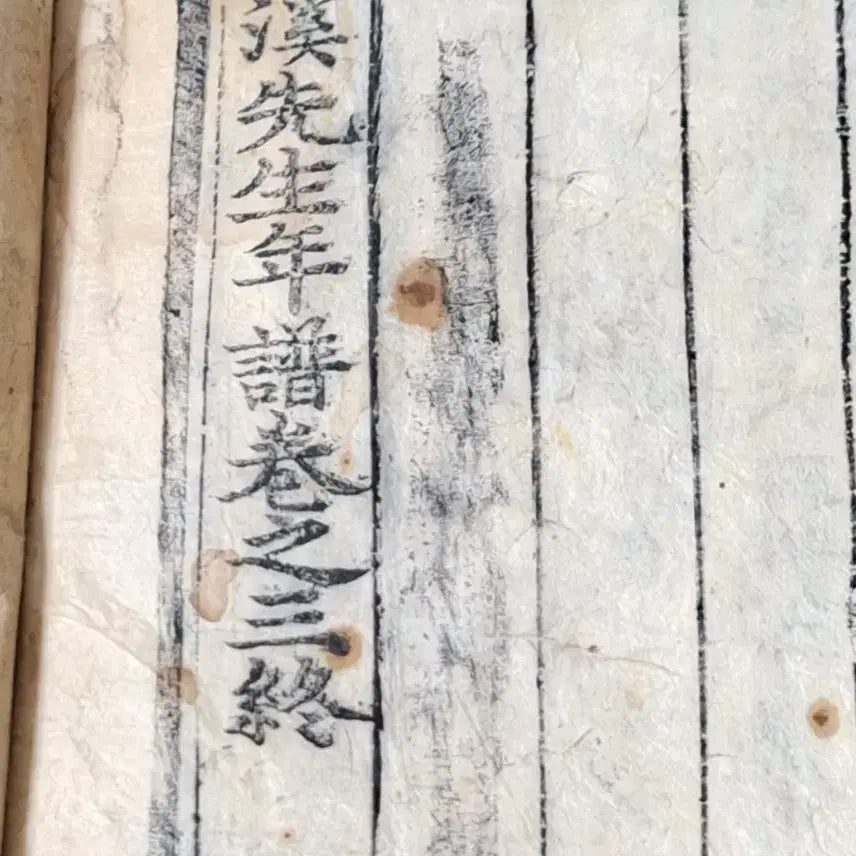 溪先生年譜卷之三終